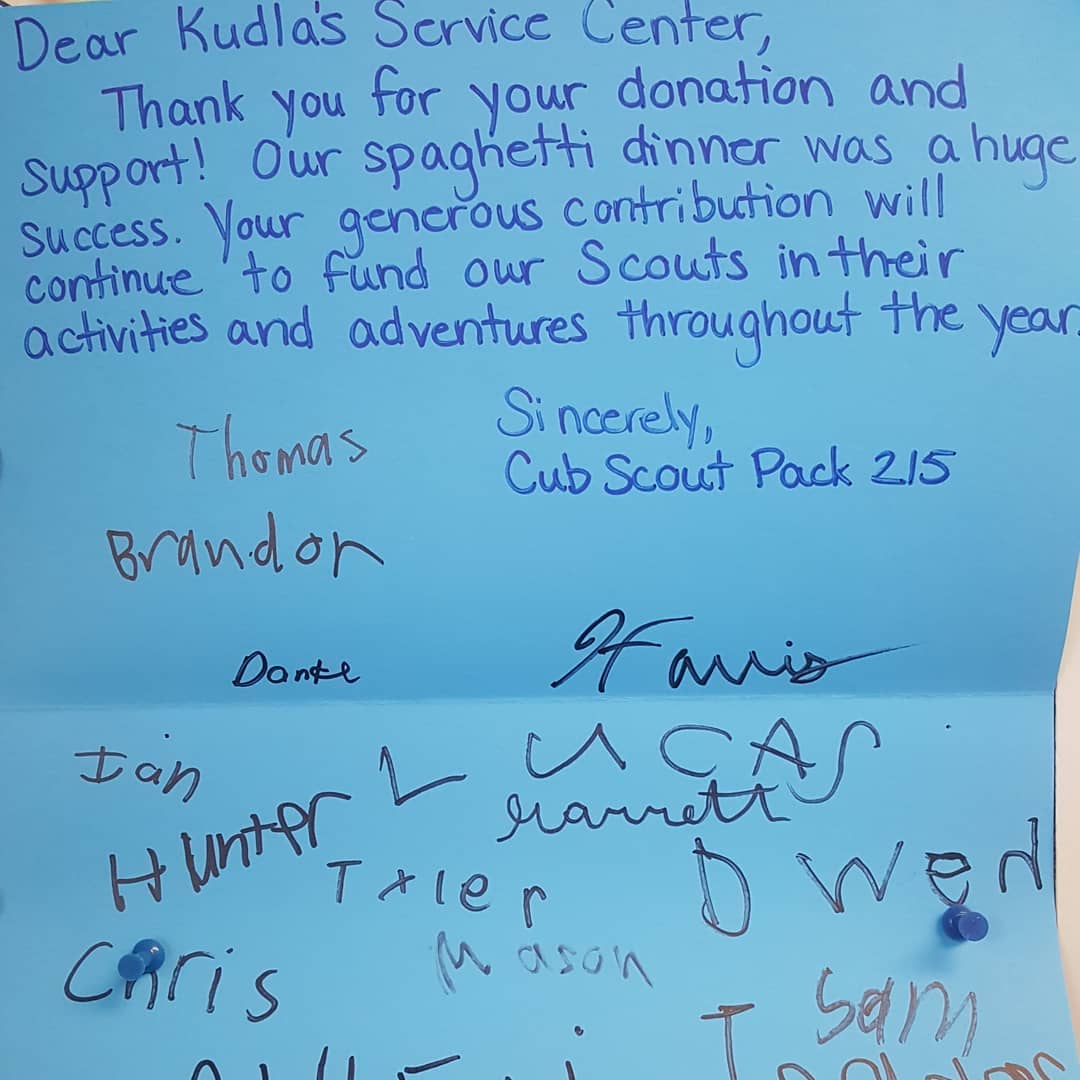 Dear Kudla's Service Center,
Thank you for your donation and
support! Our spaghetti dinner was a huge
success. Your generous contribution will
continue to fund our Scouts in their
activities and adventures throughout the year.
Sincerely,
Cub Scout Pack 215
Thomas
Brandon
Dante
Ian
LUCAS
Garrett
Hunter
Tyler
Owen
Chris
Mason
Sam